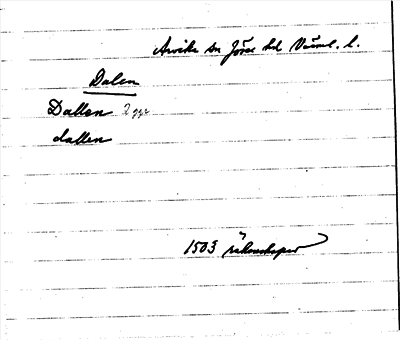 Arvika sn Jösse hd Värml. l.
Dalen
Dallen 2 ggr
dallen
1503 räkenskaper